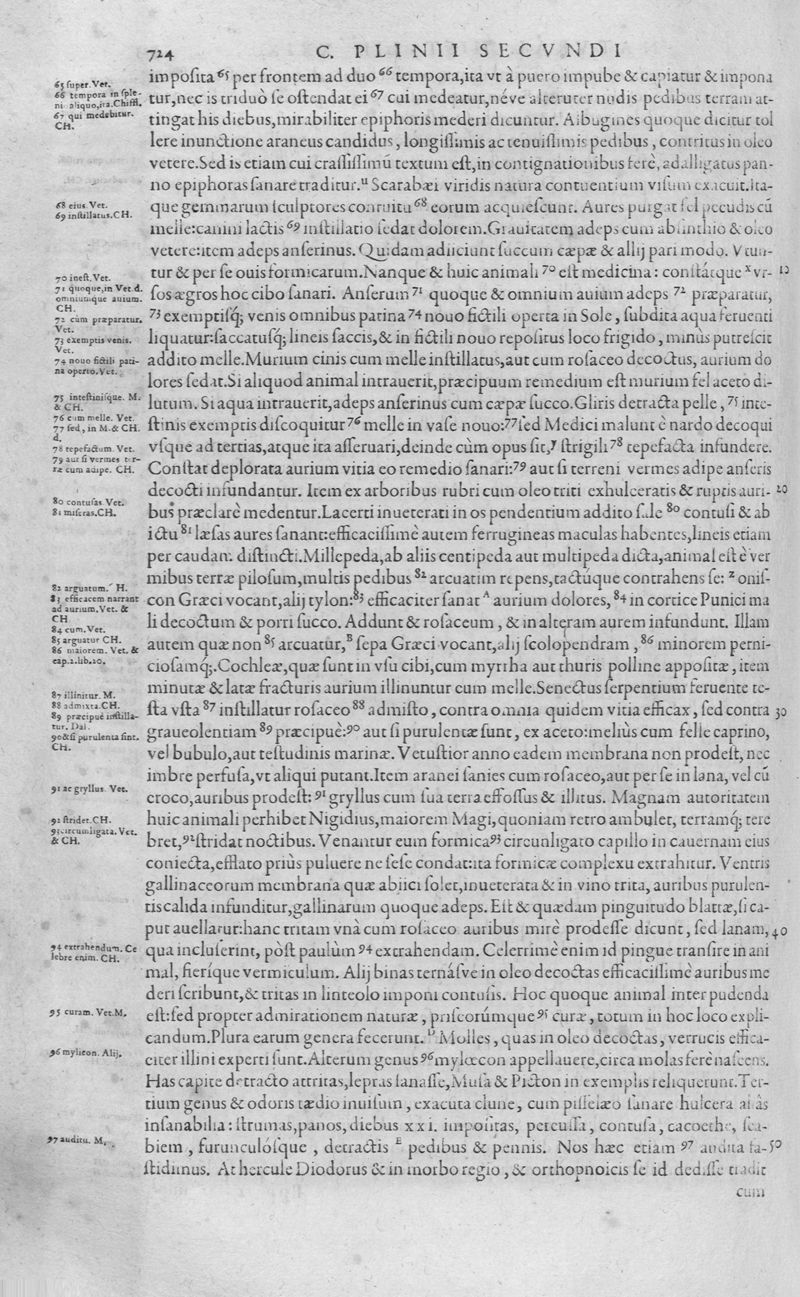 724
C. PLINII SECVNDI
impoſita 65 per frontem ad duo 66 tempora, ita vt à puero impube & capiatur & impona
tur, nec is triduò ſe oſtendat ei 67 cui medeatur, néve alteruter nudis pedibus terram at-
tingat his diebus, mirabiliter epiphoris mederi dicuntur. Albugines quoque dicitur tol
lere inunctione araneus candidus, longiſſimis ac tenuiſſimis pedibus, contritus in oleo
vetere. Sed is etiam cui craſſiſſimū textum eſt, in contignationibus ferè, adalligatus pan-
no epiphoras ſanare traditur. u Scarabæi viridis natura contuentium viſum exacuit. Ita-
que gemmarum ſculptores contuitu 68 eorum acquieſcunt. Aures purgat fel pecudis cū
melle: canini lactis 69 inſtillatio ſedat dolorem. Grauitatem adeps cum abſinthio & oleo
vetere: item adeps anſerinus. Quidam adiiciunt ſuccum cæpæ & allij pari modo. Vtun-
tur & per ſe ouis formicarum. Nanque & huic animali 70 eſt medicina: conſtátque x vr-
10
ſos ægros hoc cibo ſanari. Anſerum 71 quoque & omnium auium adeps 72 præparatur,
73 exemptiſq; venis omnibus patina 74 nouo fictili operta in Sole, ſubdita aqua feruenti
liquatur: ſaccatuſq; lineis ſaccis, & in fictili nouo repoſitus loco frigido, minùs putreſcit
addito melle. Murium cinis cum melle inſtillatus, aut cum roſaceo decoctus, aurium do
lores ſedat. Si aliquod animal intrauerit, præcipuum remedium eſt murium fel aceto di-
lutum. Si aqua intrauerit, adeps anſerinus cum cæpæ ſucco. Gliris detracta pelle, 75 inte-
ſtinis exemptis diſcoquitur 76 melle in vaſe nouo: 77 ſed Medici malunt è nardo decoqui
vſque ad tertias, atque ita aſſeruari, deinde cùm opus ſit, y ſtrigili 78 tepefacta infundere.
Conſtat deplorata aurium vitia eo remedio ſanari: 79 aut ſi terreni vermes adipe anſeris
decocti infundantur. Item ex arboribus rubri cum oleo triti exhulceratis & ruptis auri-
20
bus præclarè medentur. Lacerti inueterati in os pendentium addito ſale 80 contuſi & ab
ictu 81 læſas aures ſanant: efficaciſſimè autem ferrugineas maculas habentes, lineis etiam
per caudam diſtincti. Millepeda, ab aliis centipeda aut multipeda dicta, animal eſt è ver
mibus terræ piloſum, multis pedibus 82 arcuatim repens, tactúque contrahens ſe: z oniſ-
con Græci vocant, alij tylon: 83 efficaciter ſanat A aurium dolores, 84 in cortice Punici ma
li decoctum & porri ſucco. Addunt & roſaceum, & in alteram aurem infundunt. Illam
autem quæ non 85 arcuatur, B ſepa Græci vocant, alij ſcolopendram, 86 minorem perni-
cioſamq;. Cochleæ, quæ ſunt in vſu cibi, cum myrrha aut thuris polline appoſitæ, item
minutæ & latæ fracturis aurium illinuntur cum melle. Senectus ſerpentium feruente te-
ſta vſta 87 inſtillatur roſaceo 88 admiſto, contra omnia quidem vitia efficax, ſed contra
30
graueolentiam 89 præcipuè: 90 aut ſi purulentæ ſunt, ex aceto: meliùs cum felle caprino,
vel bubulo, aut teſtudinis marinæ. Vetuſtior anno eadem membrana non prodeſt, nec
imbre perfuſa, vt aliqui putant. Item aranei ſanies cum roſaceo, aut per ſe in lana, vel cū
croco, auribus prodeſt: 91 gryllus cum ſua terra effoſſus & illitus. Magnam autoritatem
huic animali perhibet Nigidius, maiorem Magi, quoniam retro ambulet, terramq; tere
bret, 92 ſtridat noctibus. Venantur eum formica 93 circunligato capillo in cauernam eius
coniecta, efflato priùs puluere ne ſeſe condat: ita formicæ complexu extrahitur. Ventris
gallinaceorum membrana quæ abiici ſolet, inueterata & in vino trita, auribus purulen-
tis calida infunditur, gallinarum quoque adeps. Eſt & quædam pinguitudo blattæ, ſi ca-
put auellatur: hanc tritam vnà cum roſaceo auribus mirè prodeſſe dicunt, ſed lanam,
40
qua incluſerint, pòſt paulùm 94 extrahendam. Celerrimè enim id pingue tranſire in ani
mal, fieríque vermiculum. Alij binas ternáſve in oleo decoctas efficaciſſimè auribus me
deri ſcribunt, & tritas in linteolo imponi contuſis. Hoc quoque animal inter pudenda
eſt: ſed propter admirationem naturæ, priſcorúmque 95 curæ, totum in hoc loco expli-
candum. Plura earum genera fecerunt. D Molles, quas in oleo decoctas, verrucis effica-
citer illini experti ſunt. Alterum genus 96 mylœcon appellauere, circa molas ferè naſcens.
Has capite detracto attritas, lepras ſanaſſe, Muſa & Picton in exemplis reliquerunt. Ter-
tium genus & odoris tædio inuiſum, exacuta clune, cum piſſelæo ſanare hulcera aliàs
inſanabilia: ſtrumas, panos, diebus xxi. impoſitas, percuſſa, contuſa, cacoethe, ſca-
biem, furunculóſque, detractis E pedibus & pennis. Nos hæc etiam 97 audita fa-
50
ſtidimus. At hercule Diodorus & in morbo regio, & orthopnoicis ſe id dediſſe tradit
cum
65 ſuper. Vet.
66 tempora in ſple-
ni aliquo, ita. Chiffl.
67 qui medebitur.
CH.
68 eius. Vet.
69 inſtillatus. CH.
70 ineſt. Vet.
71 quoque, in Vet. d.
omniumque auium.
CH.
72 cùm præparatur.
Vet.
73 exemptis venis.
Vet.
74 nouo fictili pati-
na operto. Vet.
75 inteſtiniſque. M.
& CH.
76 cum melle. Vet.
77 ſed, in M. & CH.
d.
78 tepefactum. Vet.
79 aut ſi vermes ter-
ræ cum adipe. CH.
80 contuſas. Vet.
81 miſeras. CH.
82 arguatum. H.
83 efficacem narrant
ad aurium. Vet. &
CH
84 cum. Vet.
85 arguatur CH.
86 maiorem. Vet. &
cap. 2. lib. 20.
87 illinitur. M.
88 admixta. CH.
89 præcipuè inſtilla-
tur. Dal.
90 & ſi purulenta ſint.
CH.
91 ac gryllus. Vet.
92 ſtridet. CH.
93 circumligata. Vet.
& CH.
94 extrahendum. Ce
lebre enim. CH.
95 curam. Vet. M.
96 myliteon. Alij.
97 auditu. M.